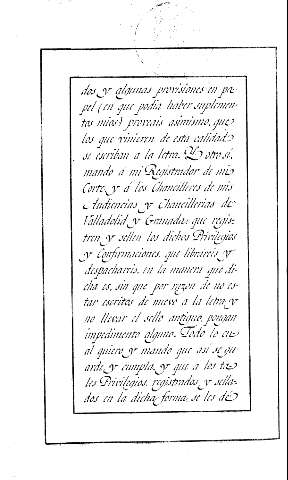 dos y algunas provisiones en pa-
pel (en que podia haber suplemen-
tos mios) proveais asimismo, que
los que vinieren de esta calidad
se escriban a la letra. Y otro si,
mando à mi Registrador de mi
Corte, y á los Chancilleres de mis
Audiencias y Chancillerias de
Valladolid y Granada, que regis-
tren y sellen los dichos Privilegios
y Confirmaciones, que libraréis y
despacharéis, en la manera que di-
cha es, sin que por razon de no es-
tar escritos de nuevo a la letra, y
no llevar el sello antiguo, pongan
impedimento alguno. Todo lo cu-
al quiero y mando que asi se gu-
arde y cumpla, y que a los ta-
les Privilegios, registrados y sella-
dos en la dicha forma, se les dé